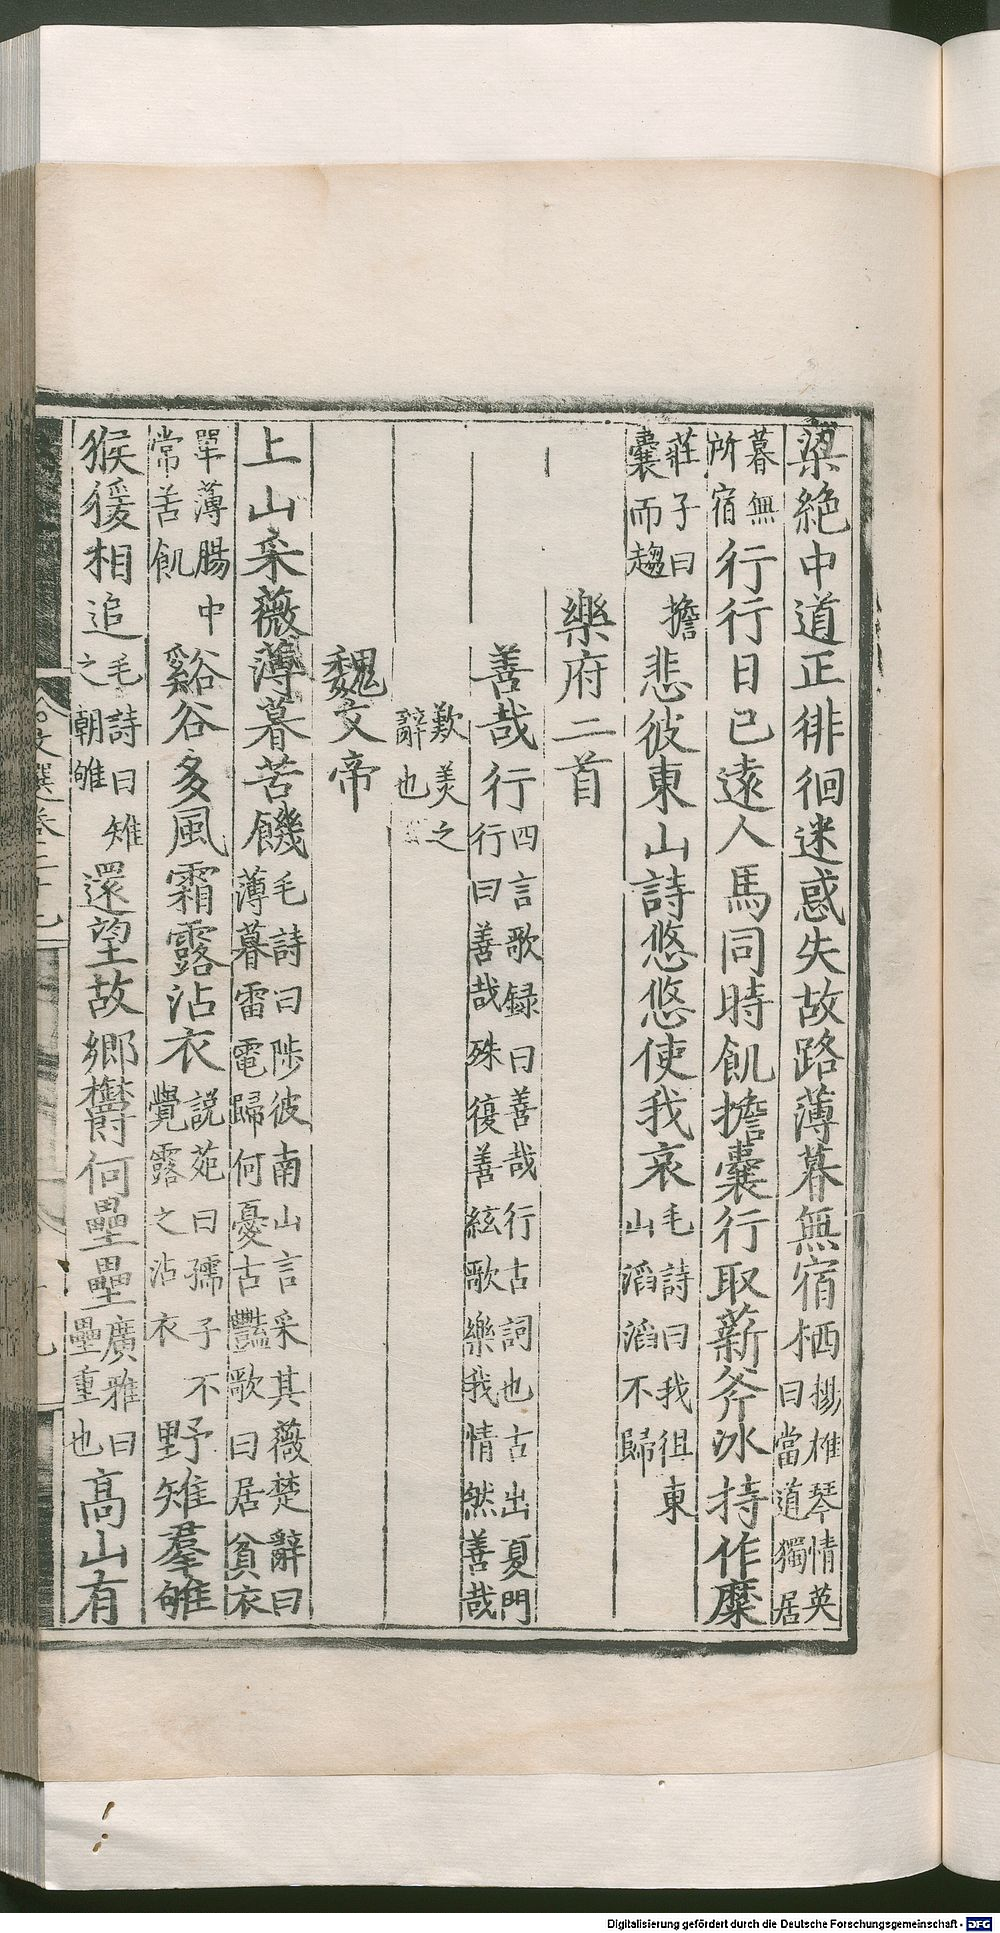 梁絶中道正徘徊迷惑失故路薄暮無宿栖揚雄琴情英曰當道獨居
暮無所宿行行日已遠人馬同時飢擔囊行取薪斧冰持作糜
莊子曰擔囊而趨悲彼東山詩悠悠使我哀毛詩曰我徂東山滔滔不歸
樂府二首
善哉行四言歌録曰善哉行古詞也古出夏門行曰善哉殊復善絃歌樂我情然善哉
歎美之辭也
魏文帝
上山采薇薄暮苦饑毛詩曰陟彼南山言采其薇楚辭曰薄暮雷電歸何憂古豔歌曰居貧衣
單薄腸中常苦飢谿谷多風霜露沾衣說苑曰孺子不覺露之沾衣野雉羣雊
猴猨相追毛詩曰雉之朝雊還望故鄉欝何壘壘廣雅曰壘重也高山有
文選卷二十七
Digitalisierung gefördert durch die Deutsche Forschungsgemeinschaft - DFG